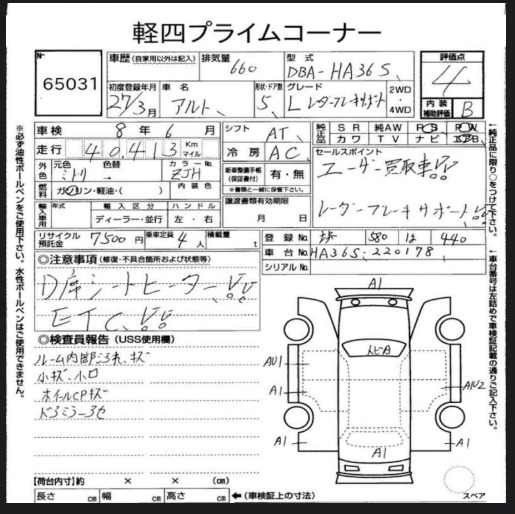 軽四プライムコーナー
No
65031
車歴 (自家用以外は記入)
排気量
660
型式
DBA-HA36S
評価点
4
初度登録年月
27/3月
車名
アルト
形状・ドア数
5
グレード
L レーダーブレーキサポート
2WD
4WD
内装
補助評価
B
※必ず油性ボールペンをご使用下さい。水性ボールペンはご使用できません。
車検 8年6月
シフト AT
純正品
SR
純AW
PS
PW
カワ
TV
ナビ
エアB
走行 40,413 Km
マイル
冷房 AC
セールスポイント
ユーザー買取車!!
レーダーブレーキサポート!!
外色
元色
ミドリ
色替
カラーNo
ZJH
新車整備手帳
(保証書付)
有・無
※書類と一緒に保管下さい。
燃料
ガソリン・軽油・( )
内装色
譲渡書類有効期限
月 日
輸入車用
年式
輸入区分
ディーラー・並行
ハンドル
左・右
リサイクル
預託金
7500円
乗車定員
4人
積載量
t
登録No
580 は 440
車台No
HA36S-220178
シリアルNo
◎注意事項 (修復・不具合箇所および状態等)
D席シートヒーター!!
ETC!!
◎検査員報告 (USS使用欄)
ルーム内部ヨゴレ、キズ
小キズ、小凹
ホイールCPキズ
A1
トビA
AU1
A1
AU2
A1
A1
A1
スペア
【荷台内寸】約 × × (cm)
長さ cm 幅 cm 高さ cm ←(車検証上の寸法)
↑純正品に限り○をつけて下さい。
↑車台番号は左詰めで車検証記載の通りご記入下さい。